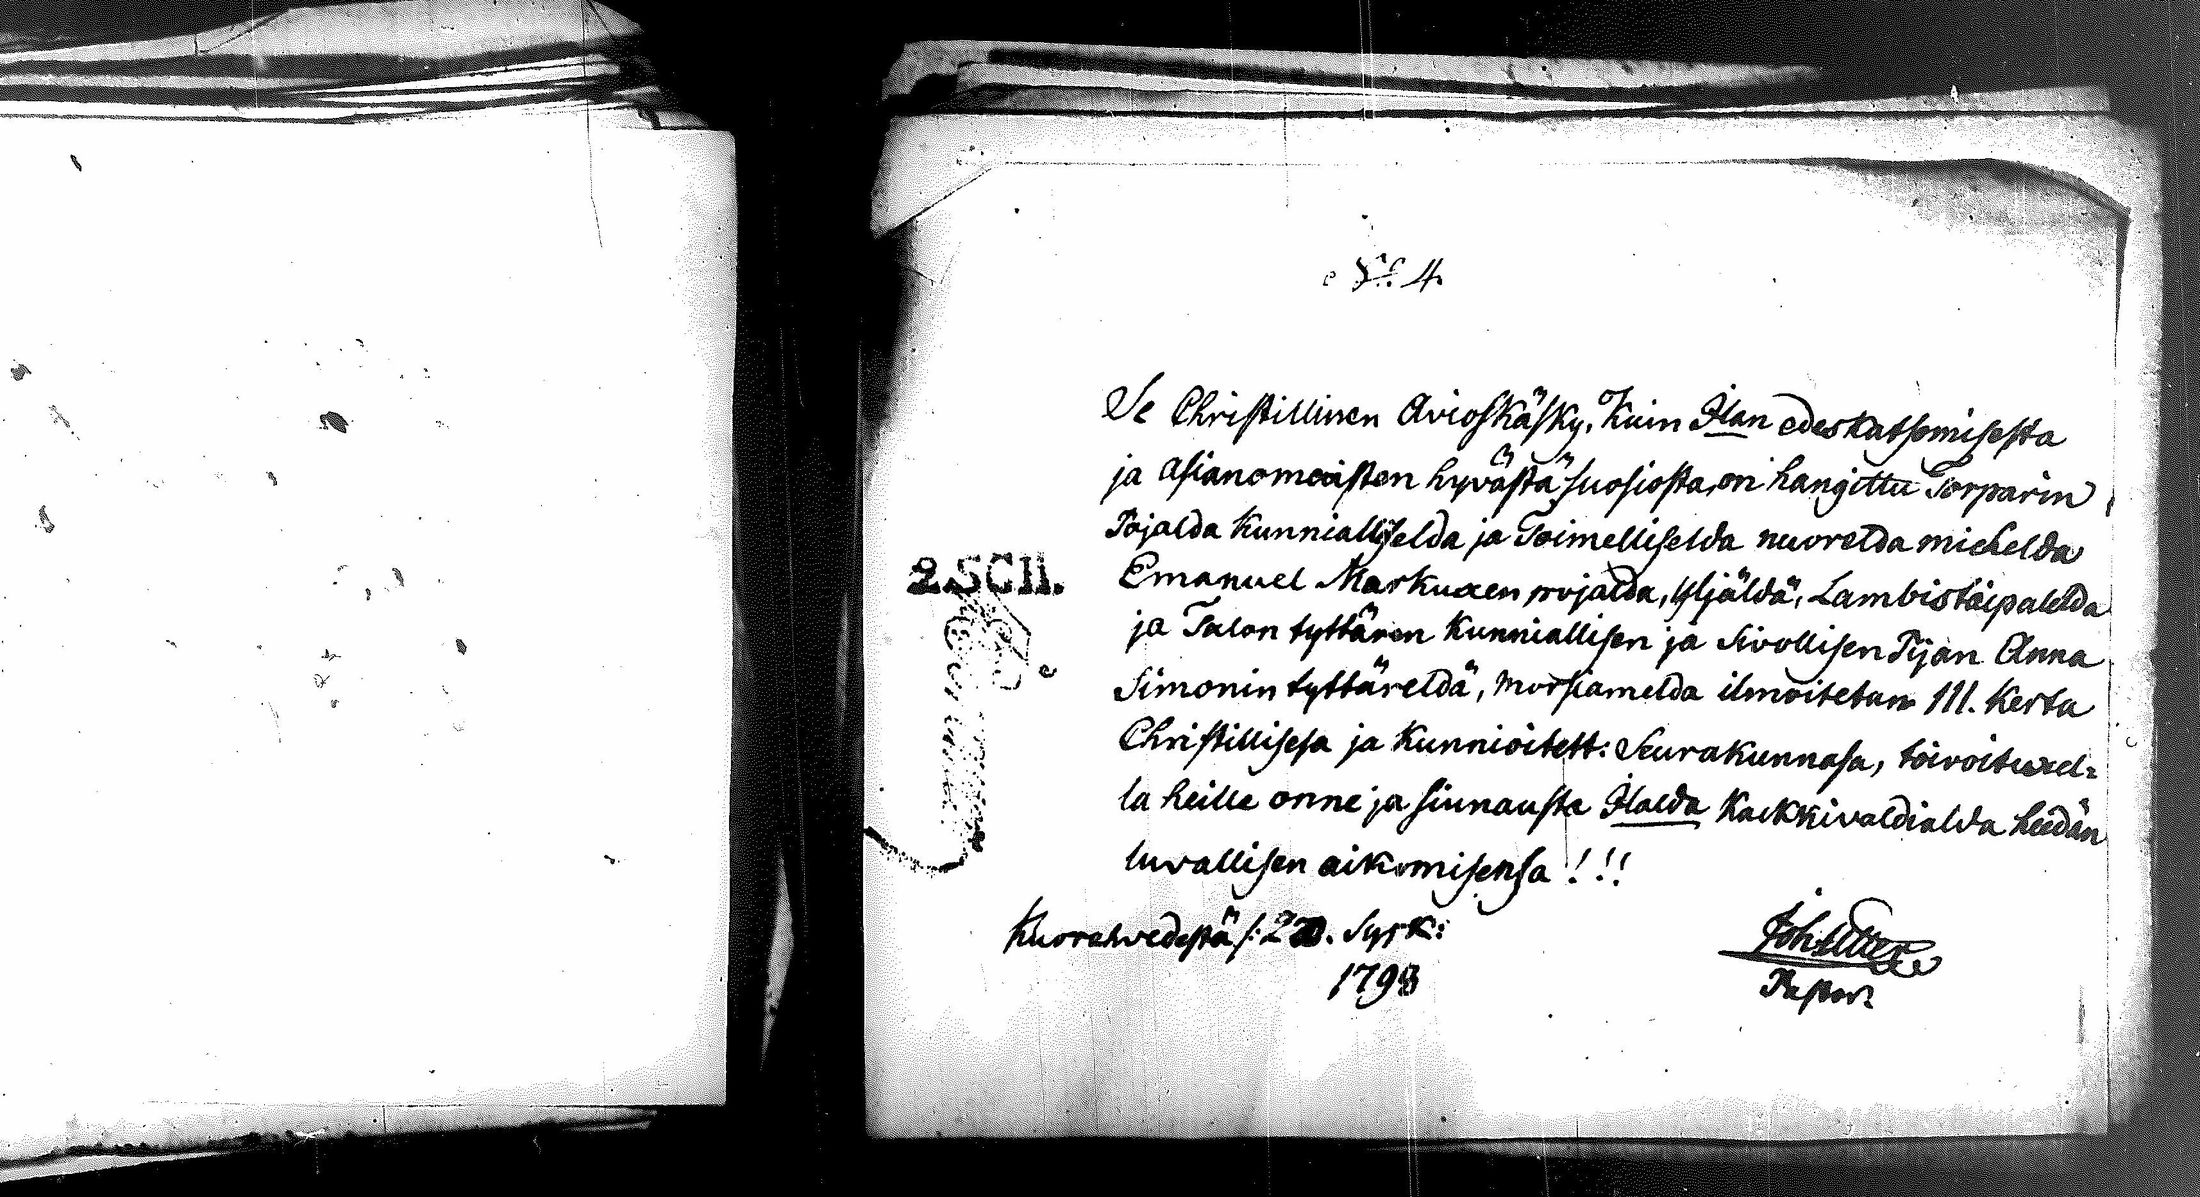 N:o 4.
Se Christillinen Avioskäsky, Kuin Ilan edeskatsomisesta
ja asianomaisten hyvästä suosiosta, on hangittu Torparin
Pojalda Kunnialliselda ja Toimelliselda nuorelda miehelda
Emanuel Markuxen pojalda, Yljäldä, Lambistaipalelda
ja Talon tyttären Kunniallisen ja Sivollisen Pijan Anna
Simonin tyttäreldä, morsiamelda ilmoitetan III. Kerta
Christillisesa ja Kunnioitett: Seurakunnasa, toivoituxel=
la heille onne ja siunausta Ilalda Kaikkivaldialda heidän
luvallisen aikomisensa !!!
Kuorehvedestä /: 22. Syysk:
1793
2.SCH.
Joh Utter
Pastor.